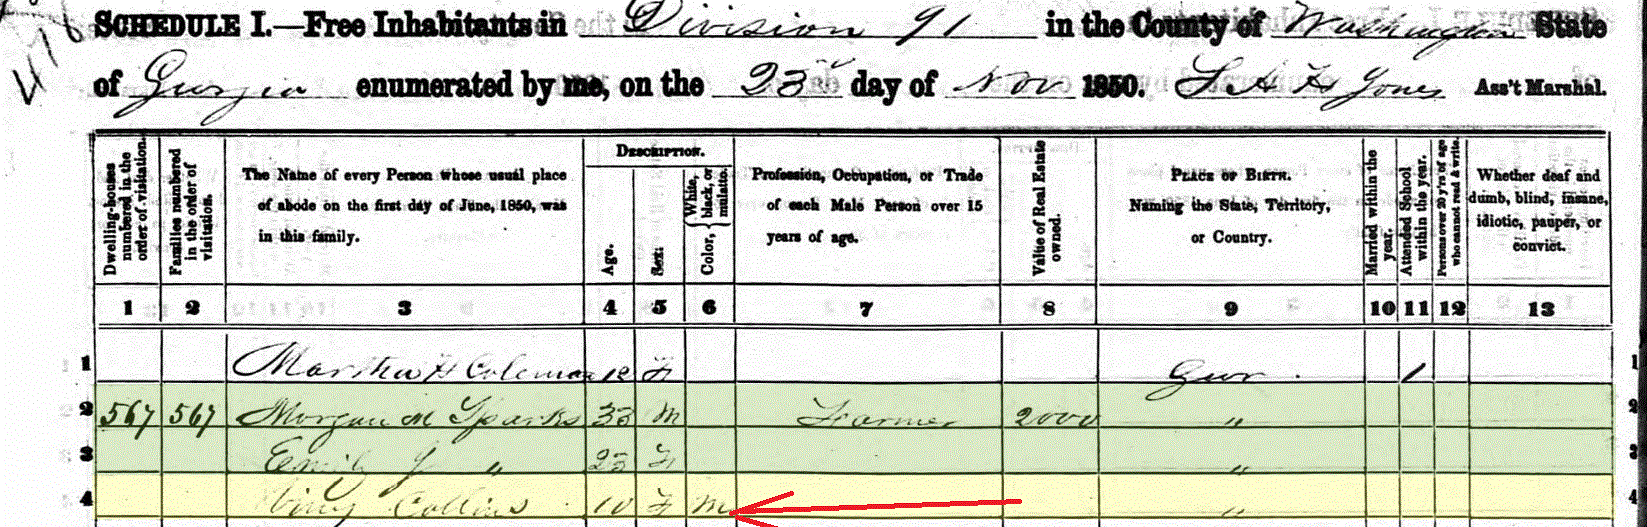 418
SCHEDULE I.—Free Inhabitants in Division 91 in the County of Washington State
of Georgia enumerated by me, on the 23d day of Nov 1850. Jones Ass't Marshal.
Dwelling-houses numbered in the order of visitation.
Families numbered in the order of visitation.
The Name of every Person whose usual place
of abode on the first day of June, 1850, was
in this family.
DESCRIPTION.
Age.
Sex.
Color, { White, black, or mulatto.
Profession, Occupation, or Trade
of each Male Person over 15
years of age.
Value of Real Estate owned.
PLACE OF BIRTH.
Naming the State, Territory,
or Country.
Married within the year.
Attended School within the year.
Persons over 20 y'rs of age who cannot read & write.
Whether deaf and
dumb, blind, insane,
idiotic, pauper, or
convict.
1 2 3 4 5 6 7 8 9 10 11 12 13
1 Martha H Coleman 12 F Geor. 1 1
2 567 567 Morgan M Sparks 33 M Farmer 2000 " 2
3 Emily J " 23 F " 3
4 Collins 10 F M " 4